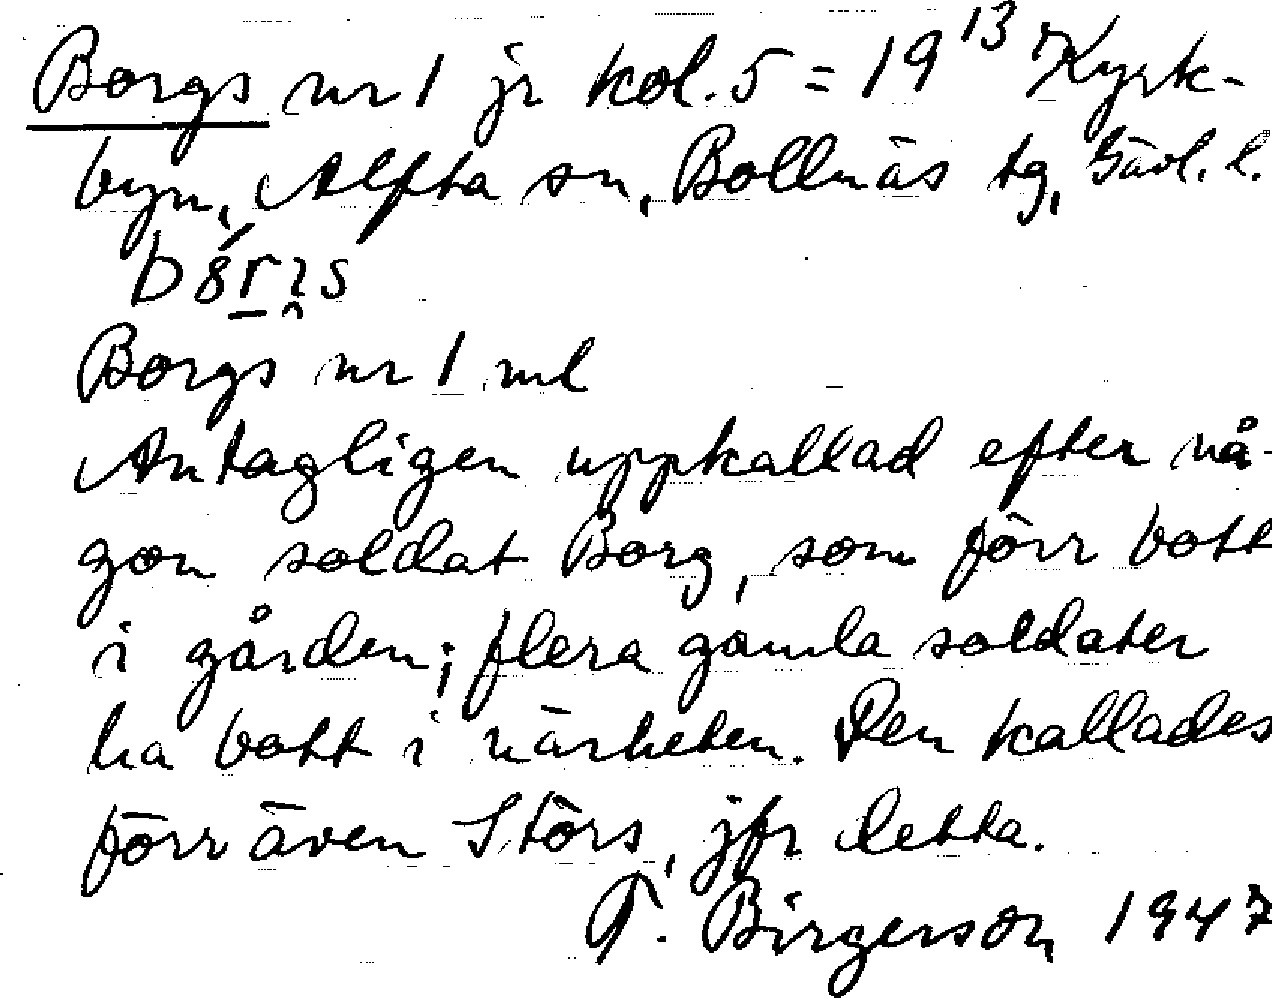 Borgs nr 1 jr kol. 5 = 19¹³ Kyrk-
byn, Alfta sn, Bollnäs tg, Gävl. l.
Borgs nr 1 ml
Antagligen uppkallad efter nå-
gon soldat Borg, som förr bott
i gården; flera gamla soldater
ha bott i närheten. Den kallades
förr även Störs, jfr detta.
T. Birgerson 1947